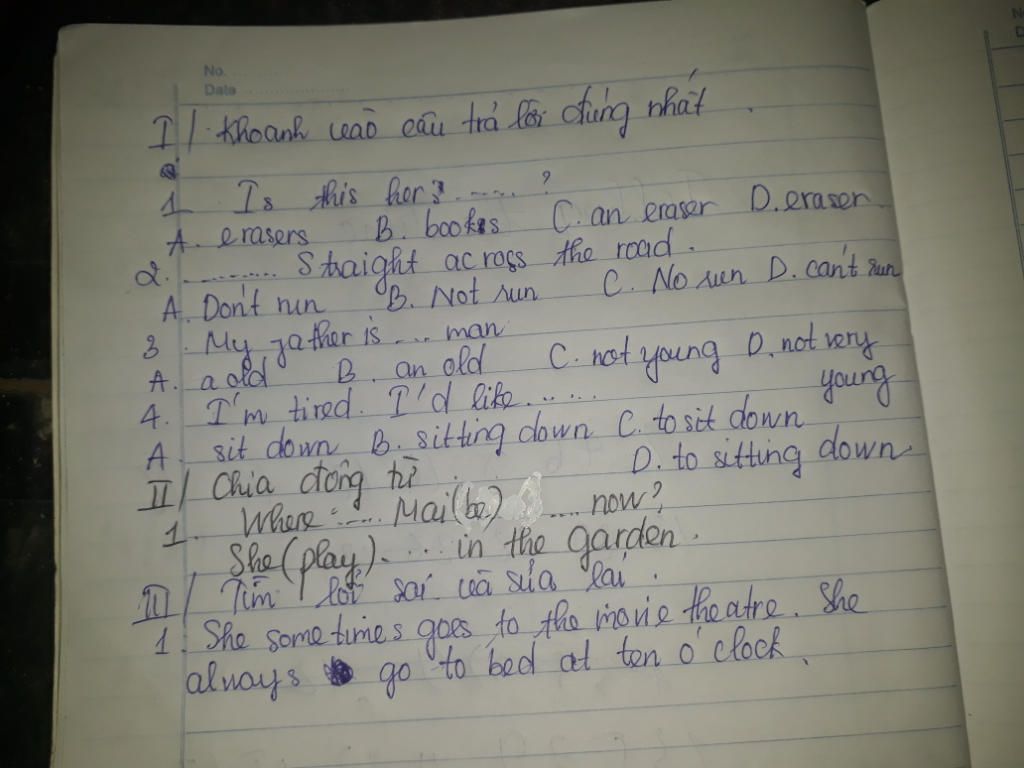 No.
Date
I/ Khoanh vào câu trả lời đúng nhất.
1 Is this her ...... ?
A. erasers B. books C. an eraser D. eraser
2. .......... Straight across the road.
A. Don't run B. Not run C. No run D. can't run
3. My father is .... man
A. a old B. an old C. not young D. not very young
4. I'm tired. I'd like......
A sit down B. sitting down C. to sit down
D. to sitting down
II/ Chia động từ.
1. Where ...... Mai (be) .... now?
She (play).... in the garden.
III/ Tìm lỗi sai và sửa lại.
1 She sometimes goes to the movie theatre. She
always go to bed at ten o'clock.